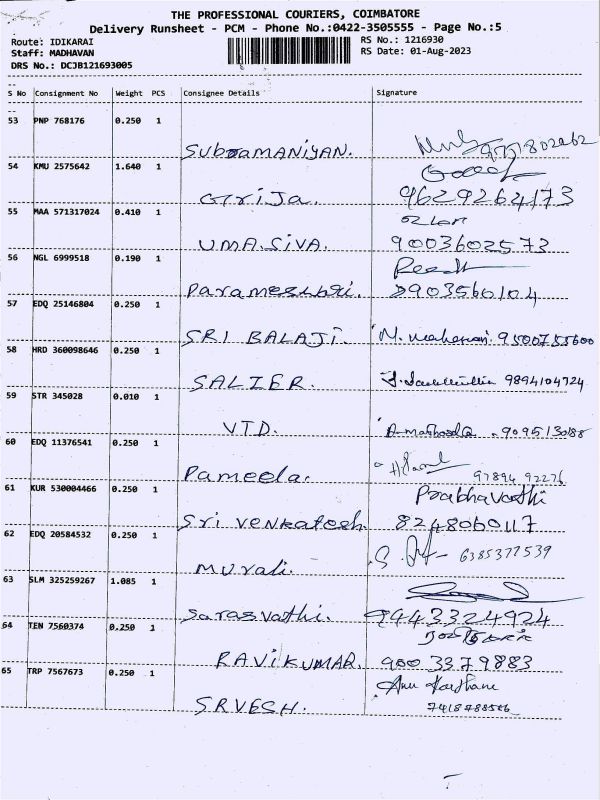 THE PROFESSIONAL COURIERS, COIMBATORE
Delivery Runsheet - PCM - Phone No.:0422-3505555 - Page No.:5
Route: IDIKARAI
RS No.: 1216930
Staff: MADHAVAN
RS Date: 01-Aug-2023
DRS No.: DCJB121693005
S No Consignment No Weight PCS Consignee Details Signature
53 PNP 768176 0.250 1
SUBRAMANIYAN.
54 KMU 2575642 1.640 1
Girija. 9629264173
55 MAA 571317024 0.410 1
UMA.SIVA. 9003602573
56 NGL 6999518 0.190 1
Parameshwari. 9903560104
57 EDQ 25146804 0.250 1
SRI BALAJI. 9500755600
58 HRD 360098646 0.250 1
SALIER. 9894104724
59 STR 345028 0.010 1
V.T.D. 9095130188
60 EDQ 11376541 0.250 1
Pameela. 97894 92276
61 KUR 530004466 0.250 1 Prabhavathi
Sri Venkatesh. 8248060117
62 EDQ 20584532 0.250 1
Murali. 6385377539
63 SLM 325259267 1.085 1
Sarasvathi. 9443324924
64 TEN 7560374 0.250 1
RAVIKUMAR. 9003379883
65 TRP 7567673 0.250 1
SRVESH. 7418788566